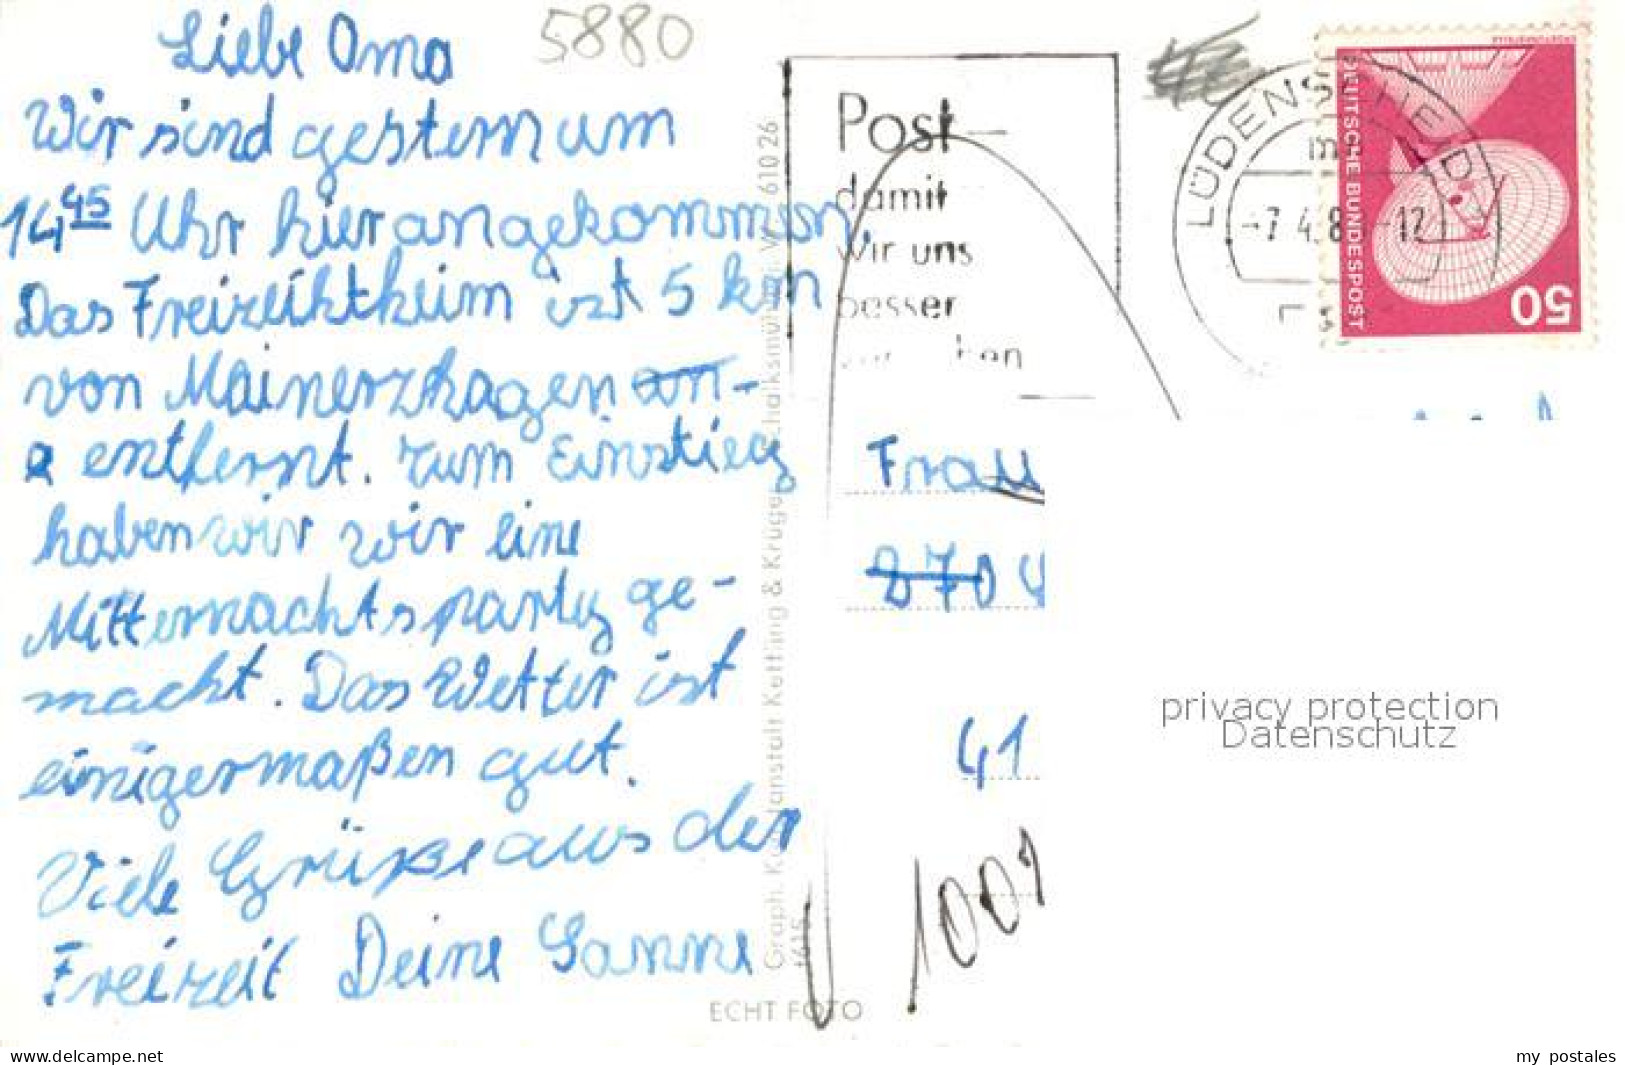 Liebe Oma
5880
Wir sind gestern um
14 45 Uhr hier angekommen.
Das Freizeihtheim ist 5 km
von Mainerzhagen an-
entfernt. Zum Einstieg
haben wir wir eine
Mitternachtsparty ge-
macht. Das Wetter ist
einigermaßen gut.
Viele Grüße aus der
Freizeit Deine Sanne
Graph. Kunstanstalt Ketting & Krüger
610 26
ECHT FOTO
Post
damit
wir uns
besser
LÜDENSCHEID
DEUTSCHE BUNDESPOST
50
Frau
270
41
1001
privacy protection
Datenschutz
www.delcampe.net
my postales